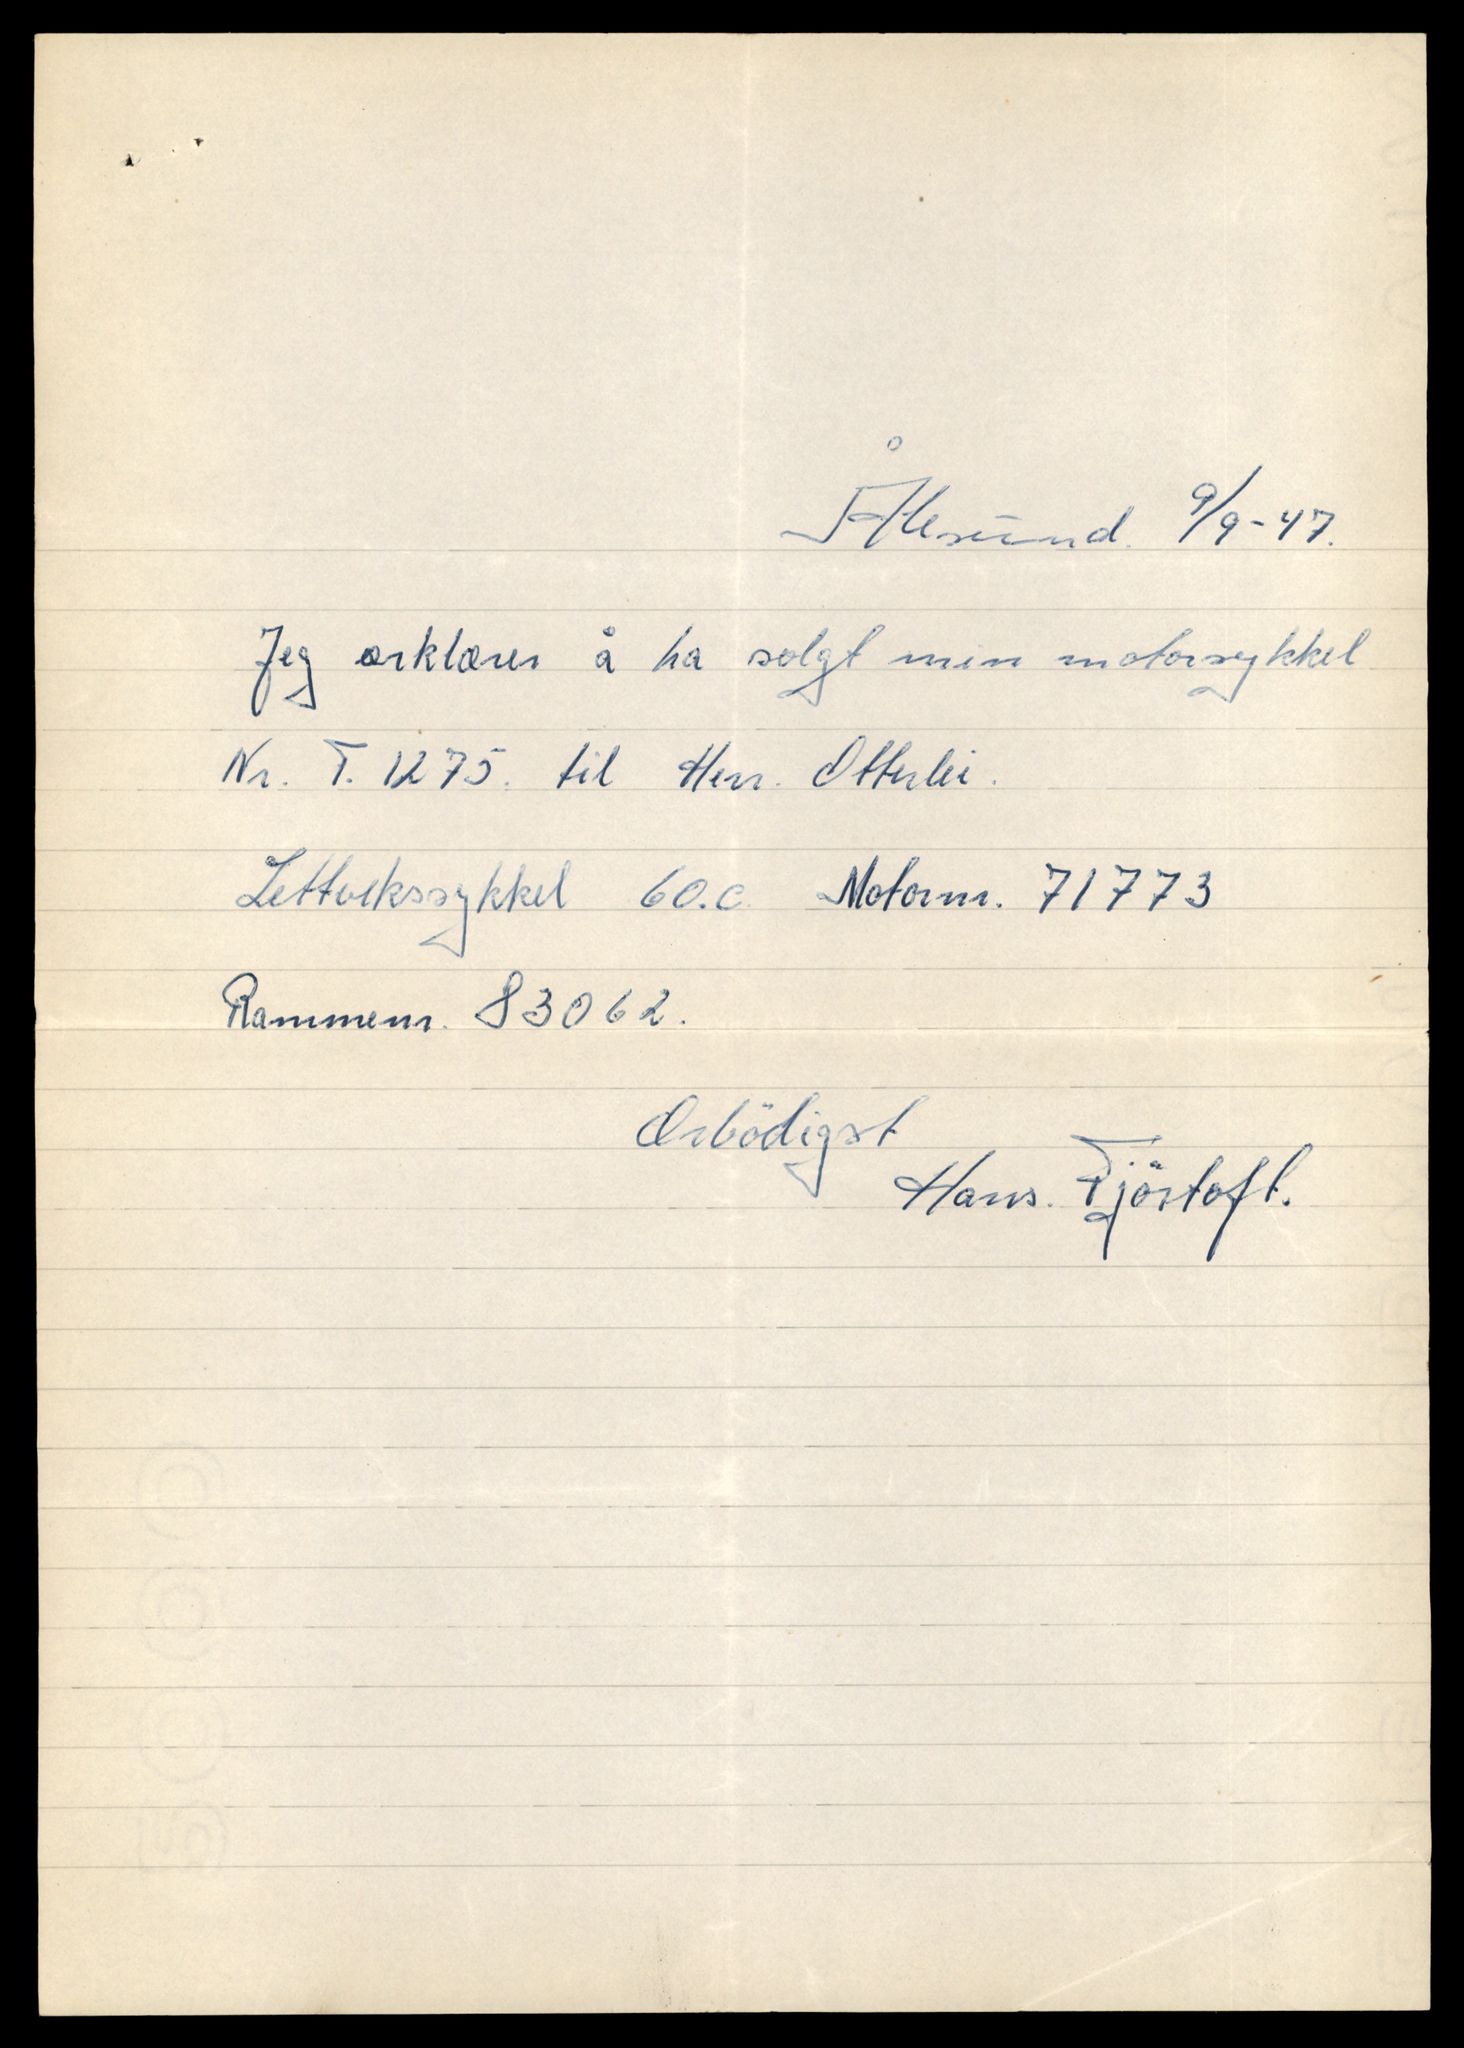 Ålesund. 9/9-47.
Jeg ærklærer å ha solgt min motorsykkel
Nr. T. 1275. til Herr. Otterlei.
Lettvektssykkel 60.c. Motornr. 71773
Rammenr. 83062.
Ærbödigst
Hans. Fjörtoft.